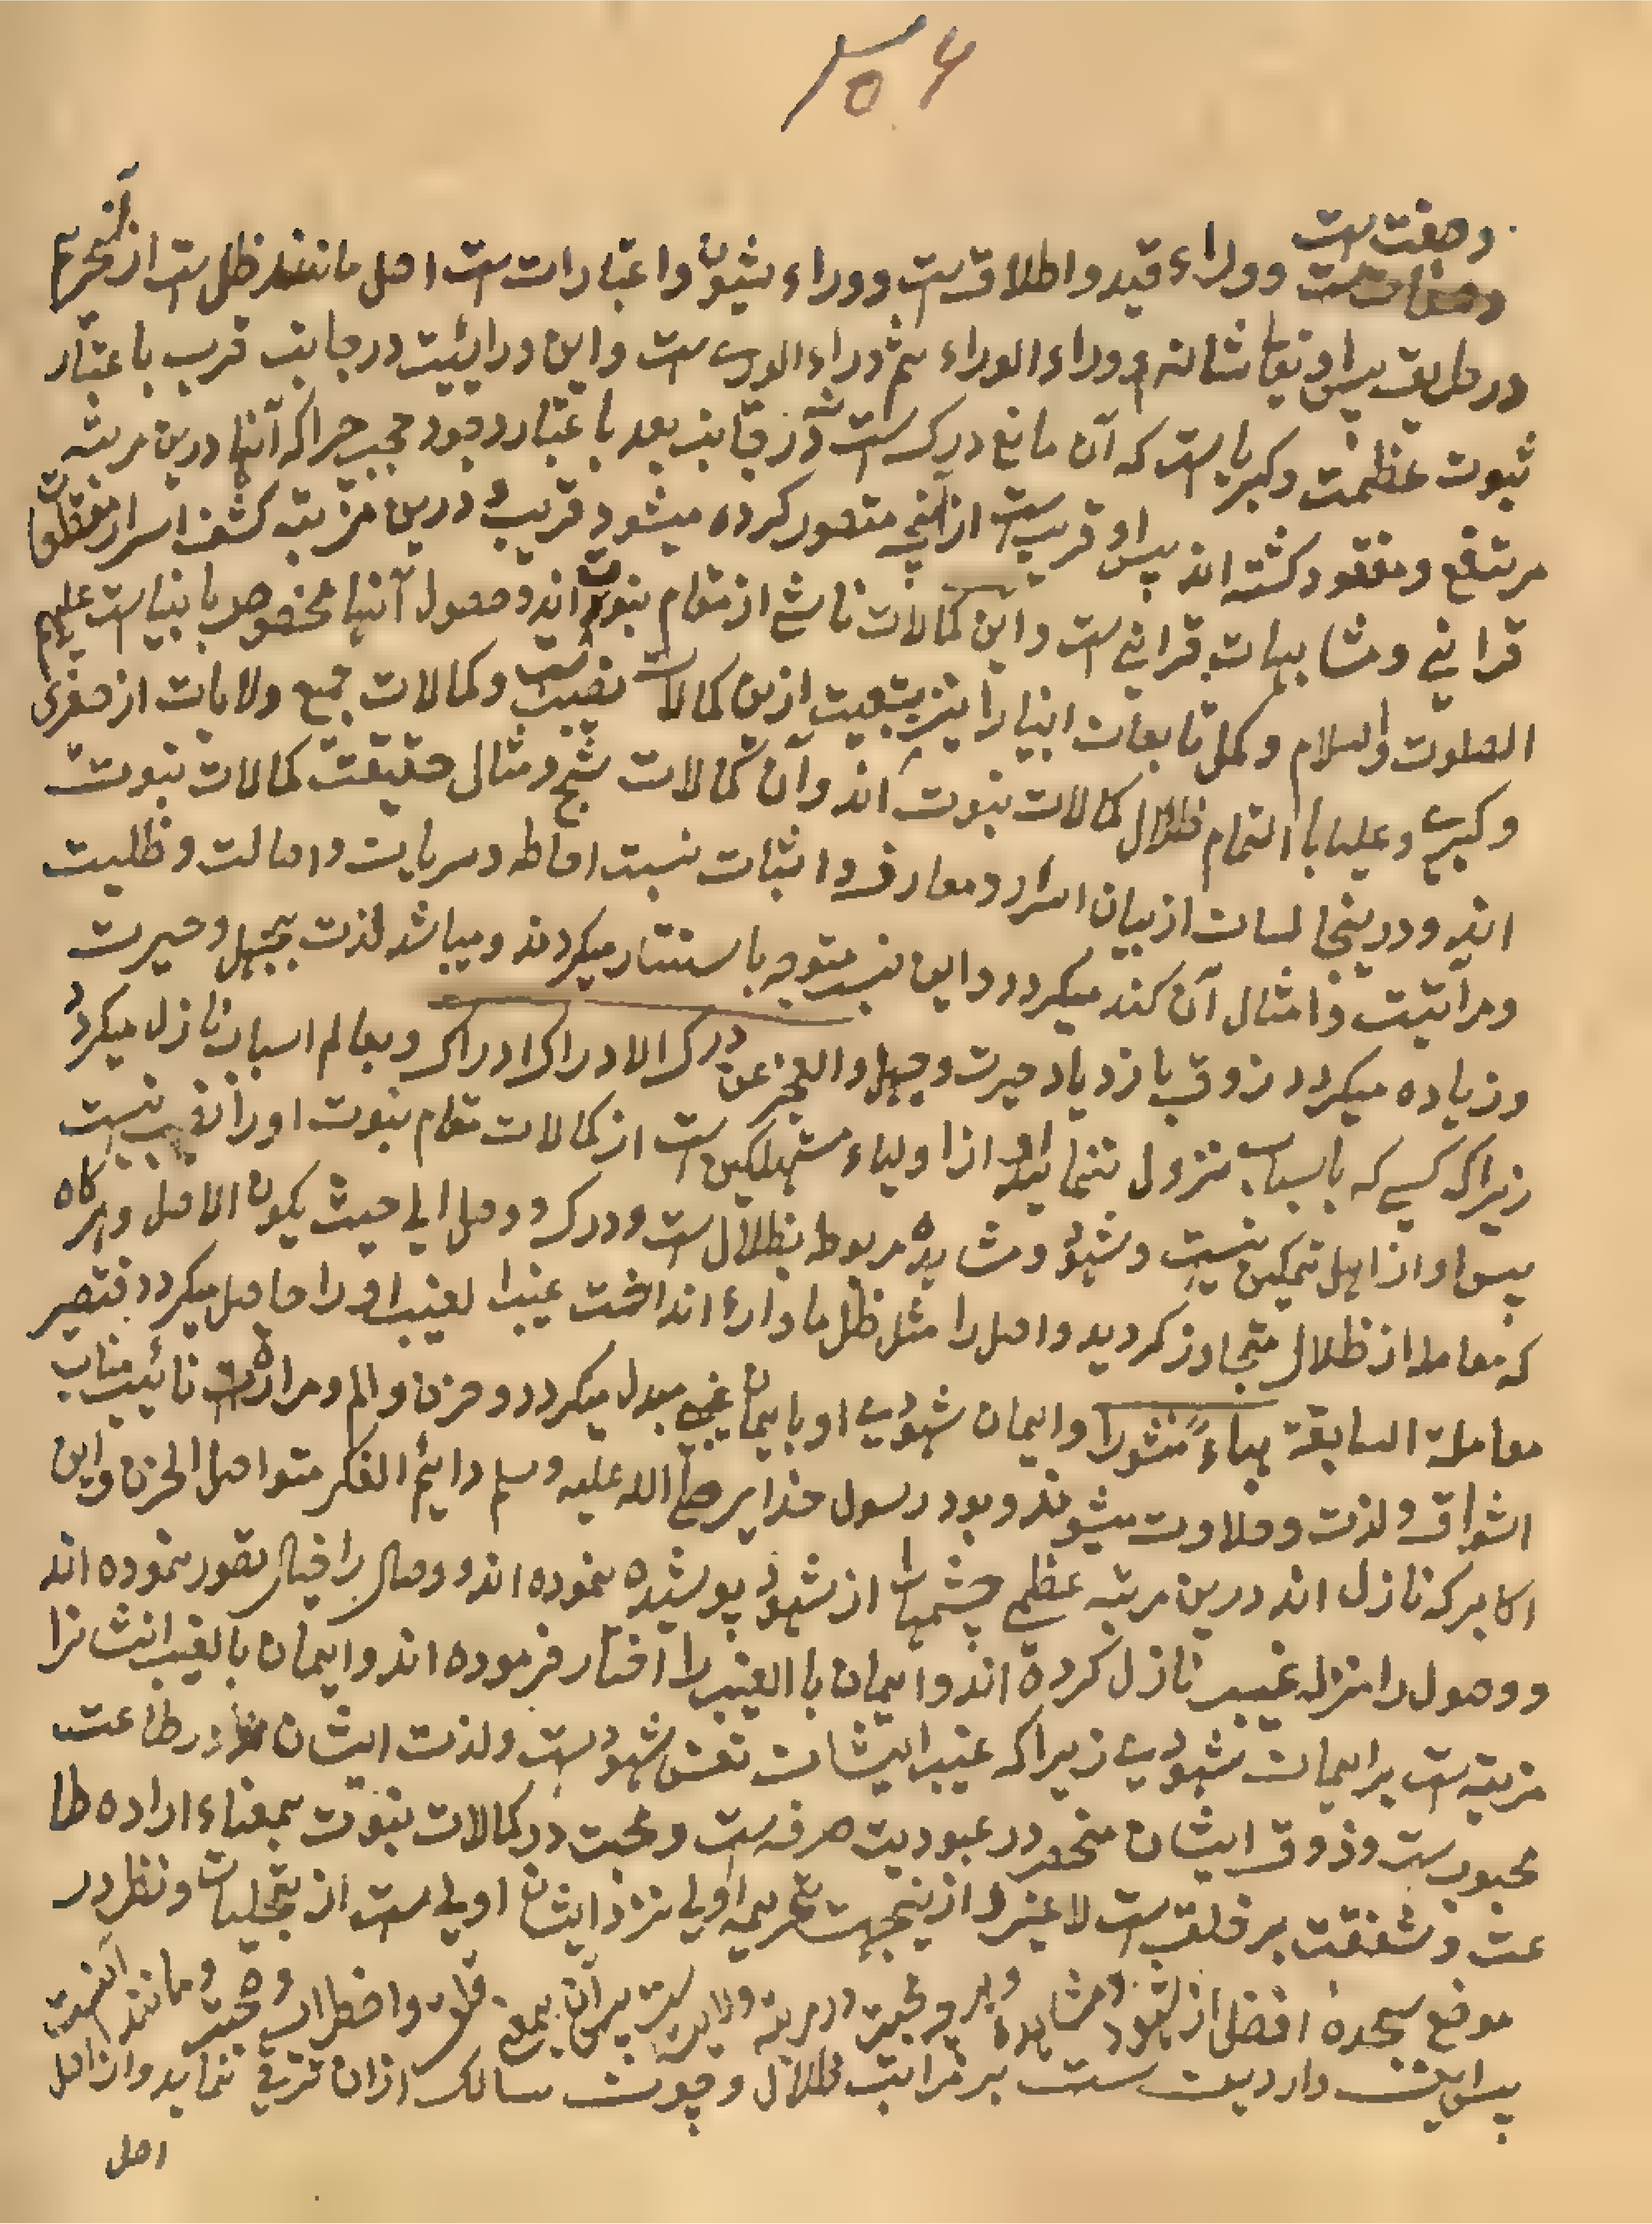 ۳۵۶
وصفت ست
ووراء قید و اطلاق ست و وراء شیون و اعتبارات ست اصل مانند ظل ست از آنحریم
در طریق پس او تعا شانه وراء الوراء ثم وراء الوری ست و این ورائیت در جانب قرب باعتبار
ثبوت عظمت و کبریاست که آن مانع درک ست نه در جانب بعد باعتبار وجود حجب چرا که آنها درین مرتبه
مرتفع و مفقود کشته اند پس او قریب ست از آنچه متصور کرده میشود قریب و درین مرتبه کشف اسرار مقطعات
قرانی و متشابهات قرانی ست و این کمالات ناشی از مقام نبوت اند و حصول آنها مخصوص بانبیاست علیهم
الصلوت والسلام و کمل تابعان انبیا را نیز بتبعیت ازین کمالات نصیب ست و کمالات جمیع ولایات از صغری
و کبری و علیا با التمام ظلال کمالات نبوت اند و آن کمالات شبح و مثال حقیقت کمالات نبوت
اند و درینجا لسان از بیان اسرار و معارف و اثبات نسبت احاطه و سریان و اصالت و ظلیت
و مرآتیت و امثال آن کند میکردد و این نسبر متوجه باستتار میکردند و میباشد لذت بجهل و حیرت
و زیاده میکردد ذوق بازدیاد حیرت و جهل و العجز عن درک الادراک ادراک و بعالم اسباب نازل میکردد
زیرا که کسی که باسباب نزول ننماید او از اولیاء مستهلکین ست از کمالات مقام نبوت او را نصیب نیست
پس او از اهل تمکین نیست و شهود و مشاهده مربوط بظلال ست و درک و وصل الی حیث یکون الاصل و هرکاه
که معامله از ظلال متجاوز کردید و اصل را مثل ظل ماوراء انداخت غیب الغیب او را حاصل میکردد فتصیر
معاملة السابقة هباءً منثورا و ایمان شهودی او بایمان غیبی مبدل میکردد و حزن و الم و مرارت نائب مناب
اشواق و لذت و حلاوت میشوند و بود رسول خدایر صلی الله علیه وسلم دائم الفکر متواصل الحزن و این
اکابر که نازل اند درین مرتبه عظمی چشمها را از شهود پوشیده نموده اند و وصال را خیال تصور نموده اند
و وصول را منزله غیب نازل کرده اند و ایمان با الغیب را اختار فرموده اند و ایمان بالغیب ایشانرا
مزیت ست بر ایمان شهودی زیرا که غیب ایشان نفس شهود ست و لذت ایشان در طاعت
محبوب ست و ذوق ایشان منحصر در عبودیت صرفه ست و محبت در کمالات نبوت بمعناء اراده طا
عت و شفقت بر خلق ست لا غیر و ازینجهت تحریمه اولی نزد ایشان اولی ست از تجلیات و نظر در
موضع سجده افضل از شهود و مشاهده و محبت در مرتبه ولایت ست پس آن بمعنی قلق و اضطراب و محبت و مانند آنست
پس این وارد یست ست بر مراتب ظلال و چون سالک ازان ترقی نماید و از اصل
اصل